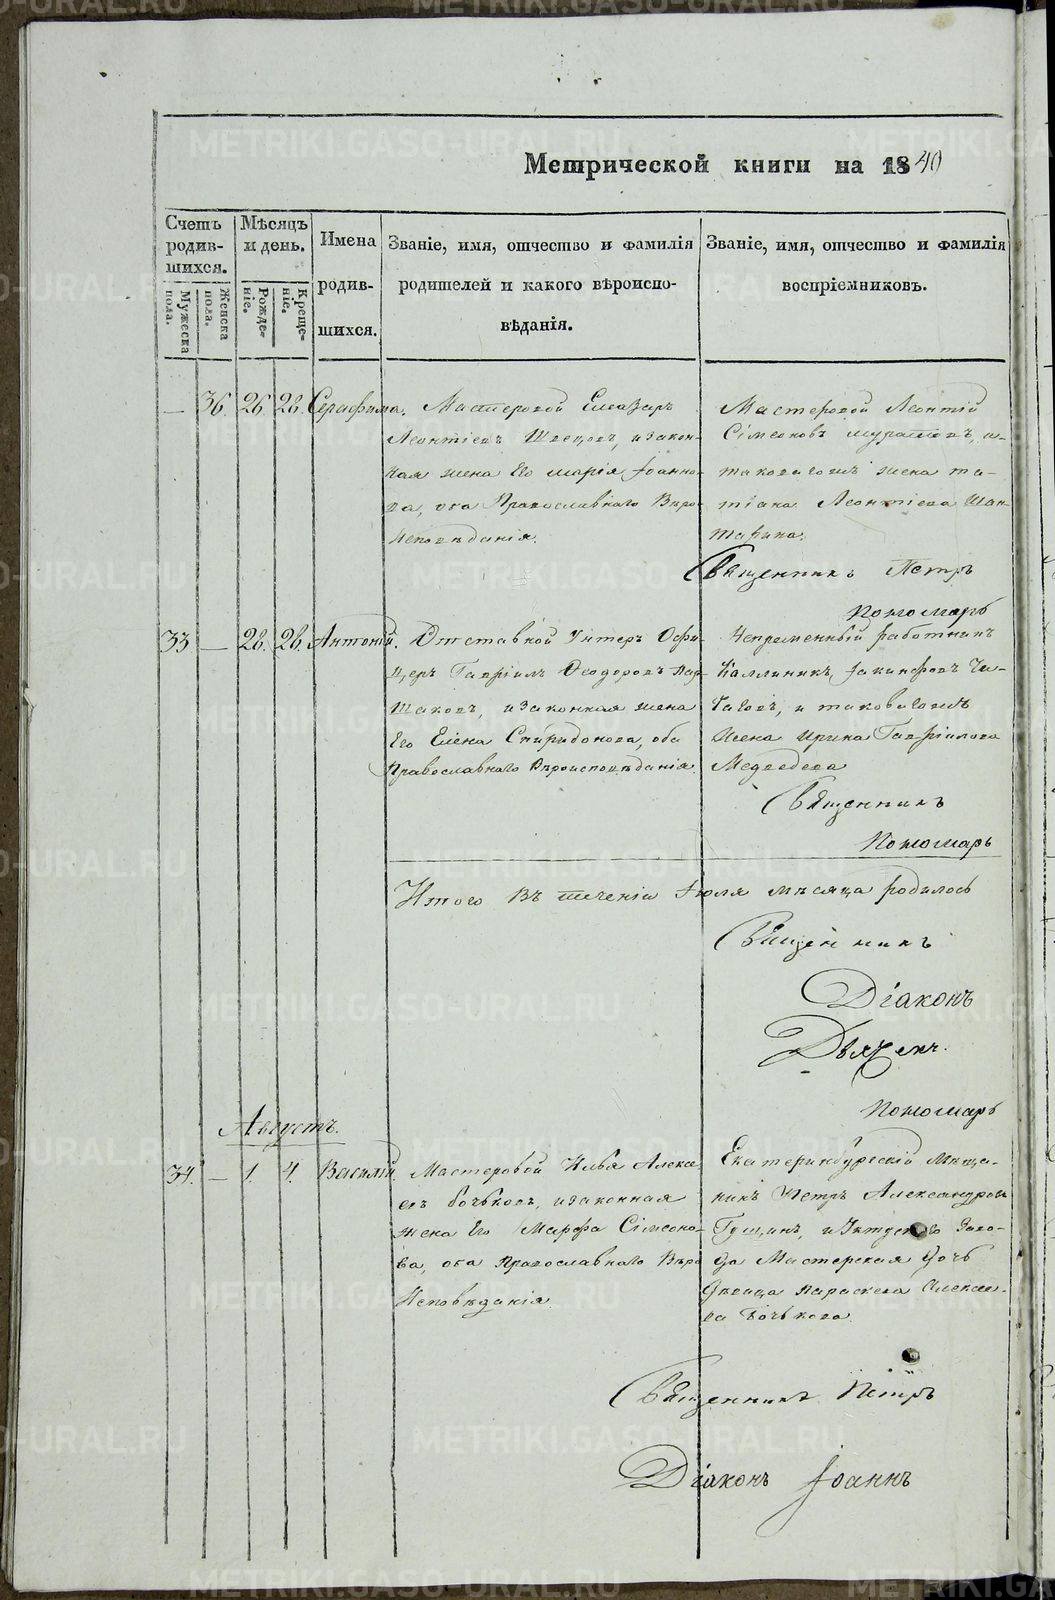 Метрической книги на 1840
Счетъ родившихся.
Мужеска пола.
Женска пола.
Мѣсяцъ и день.
Рожденіе.
Крещеніе.
Имена родившихся.
Званіе, имя, отчество и фамилія
родителей и какого вѣроиспо-
вѣданія.
Званіе, имя, отчество и фамилія
воспріемниковъ.
— 36. 26 28. Серафима.
Мастеровой Елеазаръ
Леонтіевъ Швецовъ, и закон-
ная жена Его Марія Іоанно-
ва, оба Православнаго Вѣро
Исповѣданія.
Мастеровой Леонтій
Сімеоновъ Мурашовъ, и
таковагожъ жена Та-
тіана Леонтіева Шан-
тарина.
Священникъ Петръ
Пономарь
33 — 28. 28. Антоній.
Отставной Унтеръ Офи-
церъ Гавріилъ Ѳеодоровъ Пар-
шаковъ, и законная жена
Его Елена Спиридонова, оба
Православнаго Вѣроисповѣданія.
Непременный работникъ
Каллиникъ Іакинфовъ Чи-
, и таковагожъ
жена Ирина Гавріилова
Медведева
Священникъ
Пономарь
Итого Въ теченіи Іюля мѣсяца родилось
Священникъ
Діаконъ
Дьячекъ.
Пономарь
Августъ.
34. — 1. 4. Василій.
Мастеровой Илья Алексѣ
евъ Бочковъ, и законная
жена Его Марфа Сімеоно-
ва, оба Православнаго Вѣро
Исповѣданія
Екатеринбургскій Мѣща-
нинъ Петръ Александровъ
Гущинъ, и Уктускаго Заво-
да Мастерская Дочь
Девица Параскева Алексѣе-
ва Бочькова.
Священникъ Петръ
Діаконъ Іоаннъ
METRIKI.GASO-URAL.RU